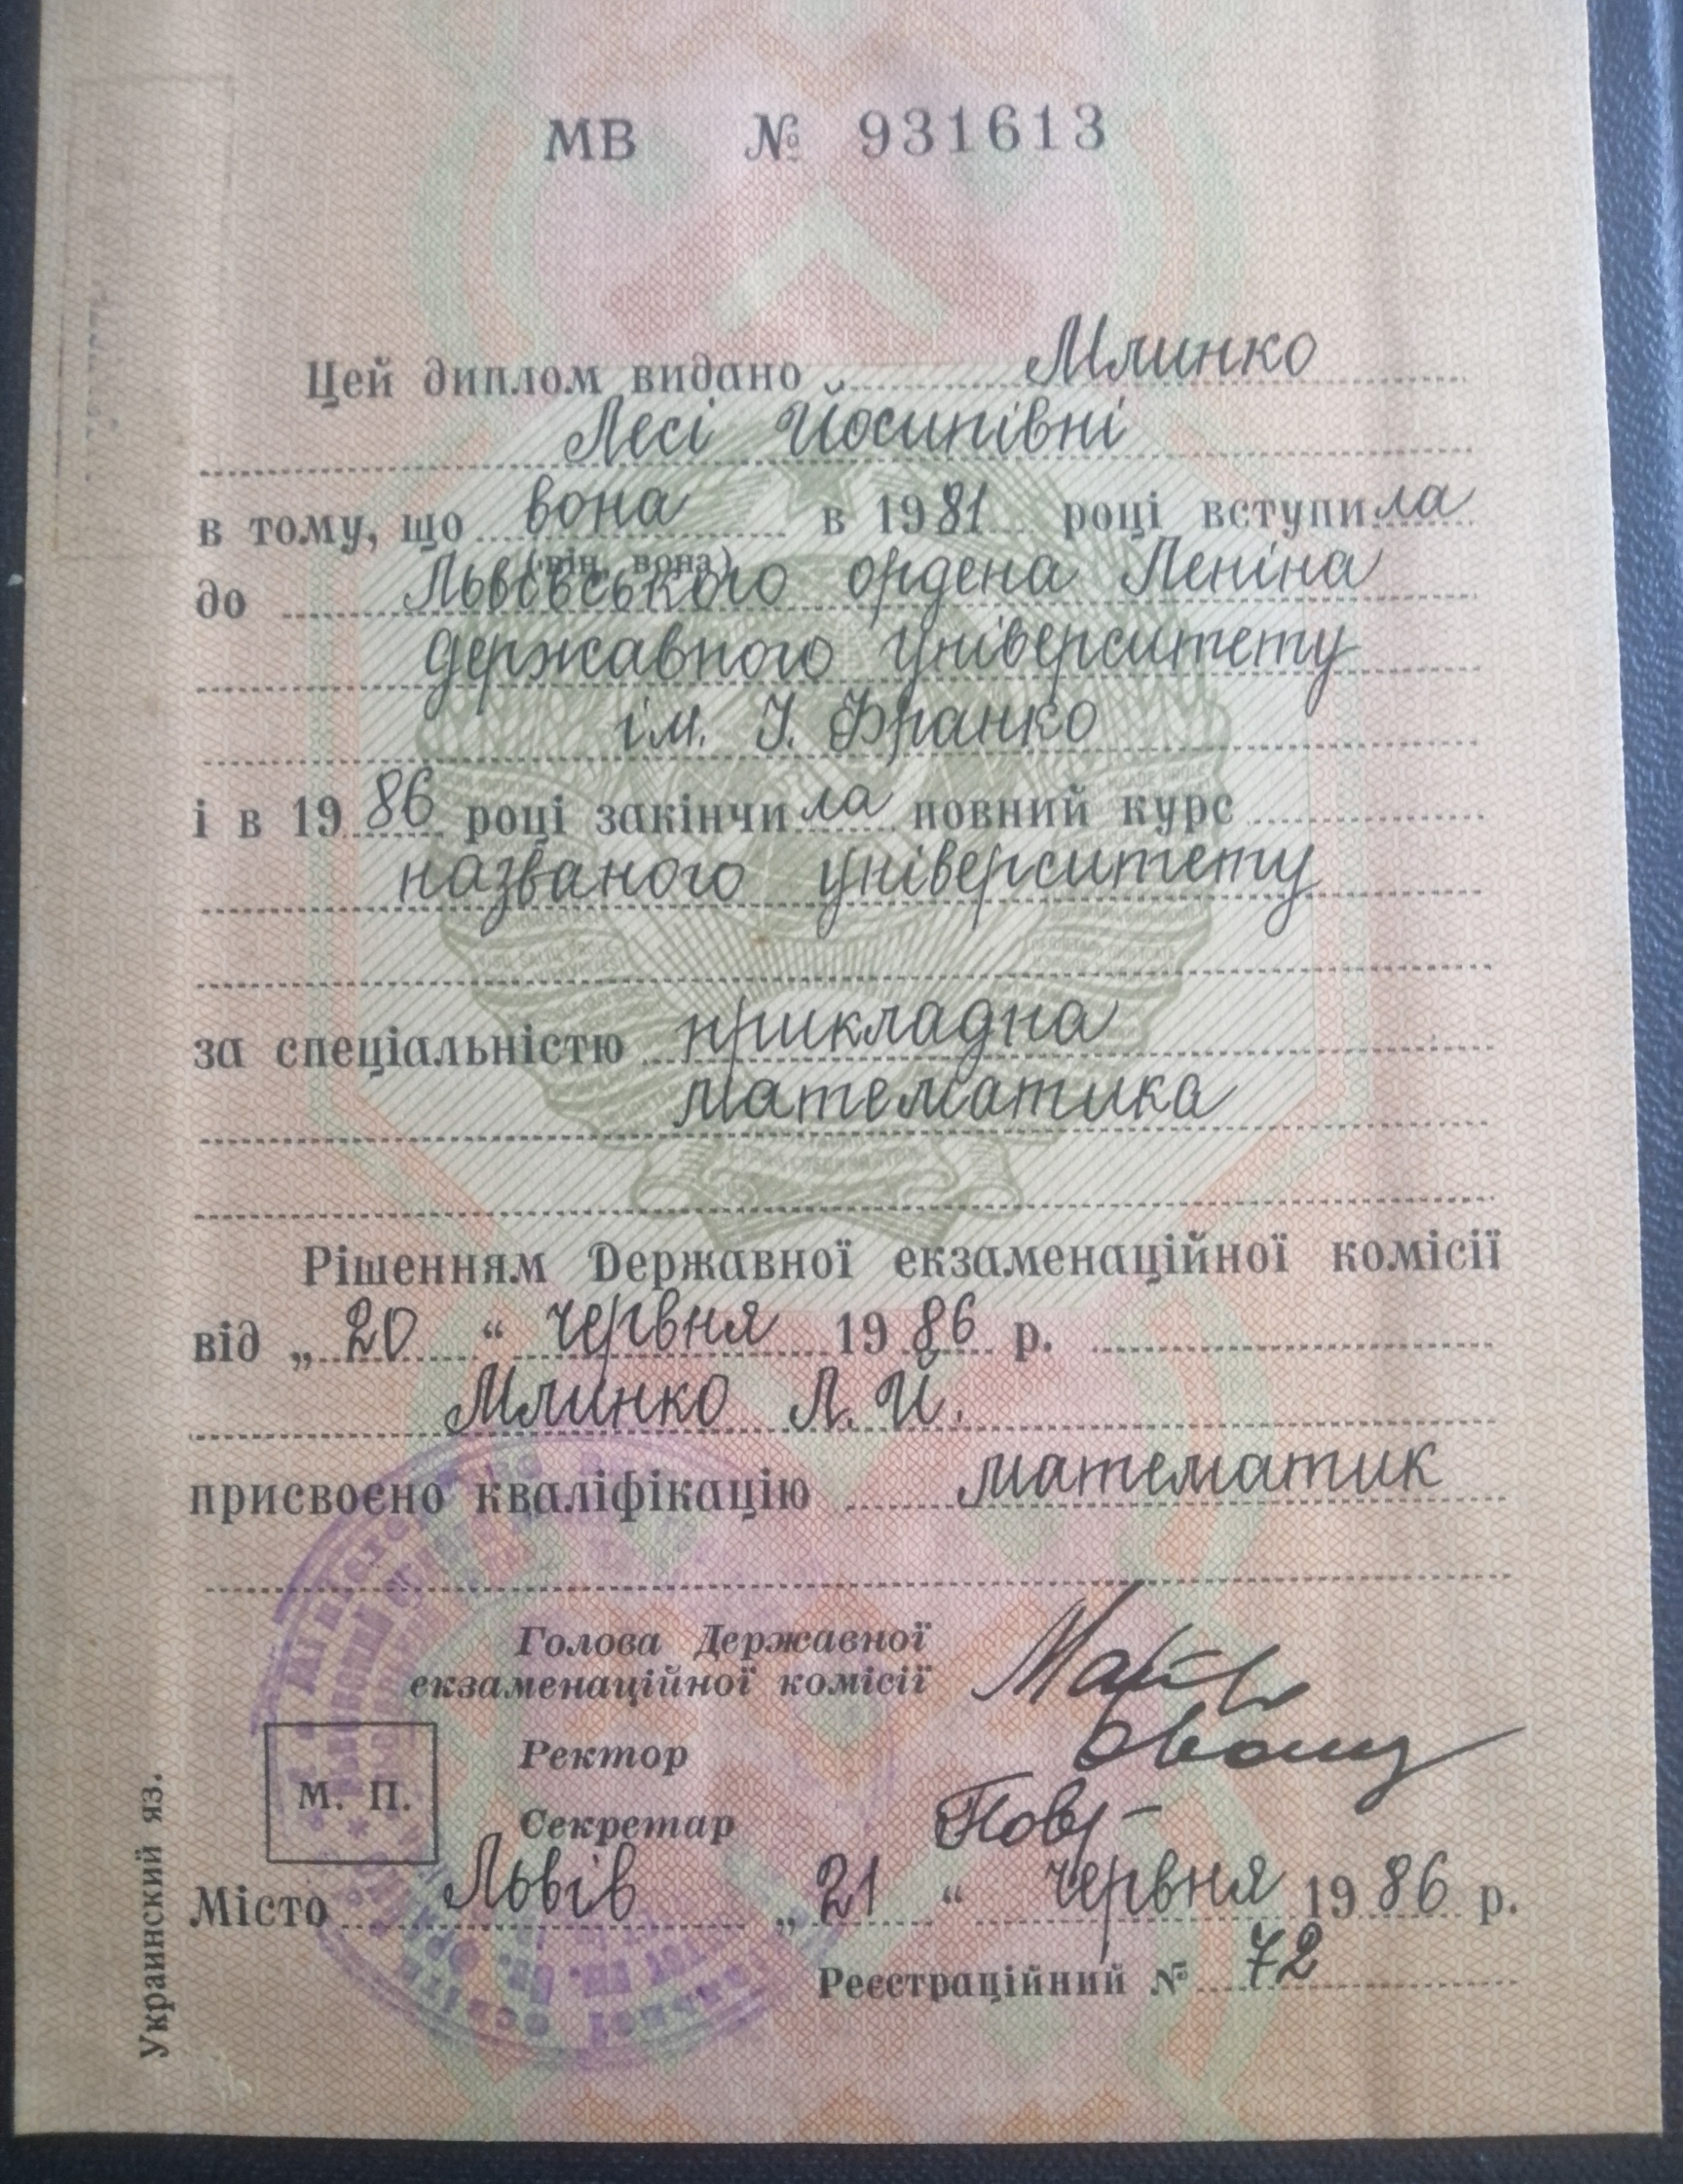 МВ № 931613
Цей диплом видано Млинко
Лесі Йосипівні
в тому, що вона в 1981 році вступила
(він, вона)
до Львівського ордена Леніна
державного університету
ім. І. Франко
і в 1986 році закінчила повний курс
названого університету
за спеціальністю прикладна
математика
Рішенням Державної екзаменаційної комісії
від „20“ червня 1986 р.
Млинко Л. Й.
присвоєно кваліфікацію математик
Голова Державної
екзаменаційної комісії
Ректор
М. П.
Секретар
Місто Львів „21“ червня 1986 р.
Реєстраційний № 72
Украинский яз.